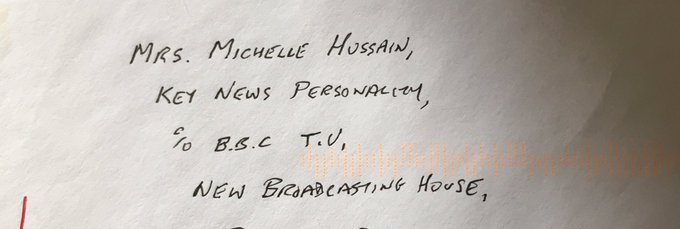 MRS. MICHELLE HUSSAIN,
KEY NEWS PERSONALITY,
c/o B.B.C T.V,
NEW BROADCASTING HOUSE,